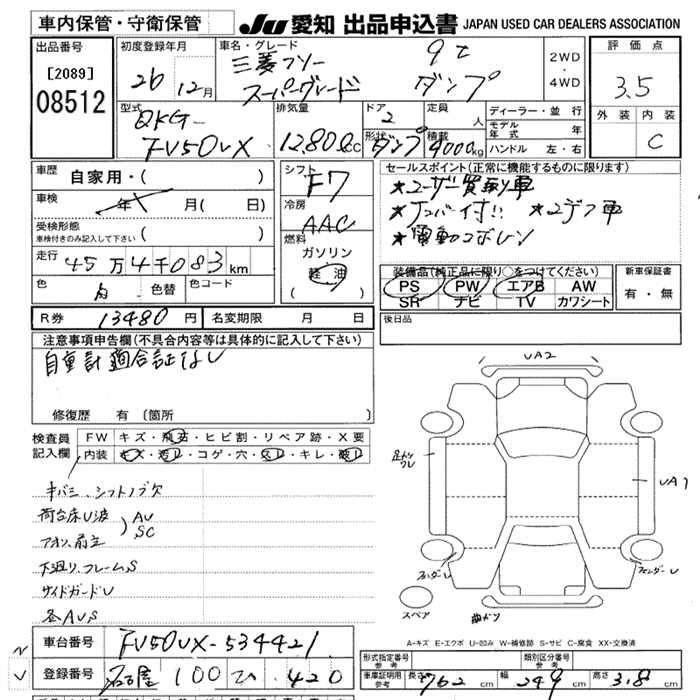 車内保管・守衛保管
JU 愛知 出品申込書 JAPAN USED CAR DEALERS ASSOCIATION
出品番号
[2089]
08512
初度登録年月
26 12月
車名・グレード
三菱フソー 9t
スーパーグレード ダンプ
2WD
・
4WD
評価点
3.5
外装 内装
C
型式
QKG-
FV50VX
排気量
12,800cc
ドア
2
形状
ダンプ
定員
人
積載
9000kg
ディーラー・並行
モデル年式 年
ハンドル 左・右
車歴
自家用・( )
車検
年 月( 日)
受検形態
車検付きのみ記入して下さい ( )
走行 45万4千083km
色 白 色替 色コード
シフト
F7
冷房
AAC
燃料
ガソリン
軽油
( )
セールスポイント(正常に機能するものに限ります)
★ユーザー買取車
★ナンバー付!! ★2デフ車
★電動コボレン
装備品(純正品に限り○をつけてください)
PS PW エアB AW
SR ナビ TV カワシート
新車保証書
有・無
R券 13480円 名変期限 月 日
後日品
注意事項申告欄(不具合内容等は具体的に記入して下さい)
自重計適合証なし
修復歴 有〔箇所
検査員
記入欄
FW キズ・飛石・ヒビ割・リペア跡・X要
内装 キズ・汚レ・コゲ・穴・スレ・キレ・破レ
キバミ、シフトノブ欠
荷台床U波
アオリ、前立
AU
SC
下廻り、フレームS
サイドガードU
各AUS
UA2
UA1
フェンダーU
フェンダーU
スペア
A-キズ E-エクボ U-凹み W-補修跡 S-サビ C-腐食 XX-交換済
車台番号 FV50VX-534421
登録番号 名古屋 100 ひ 420
形式指定番号
参考
類別区分番号
参考
車庫証明用
参考
長さ 762 幅 249 高さ 318